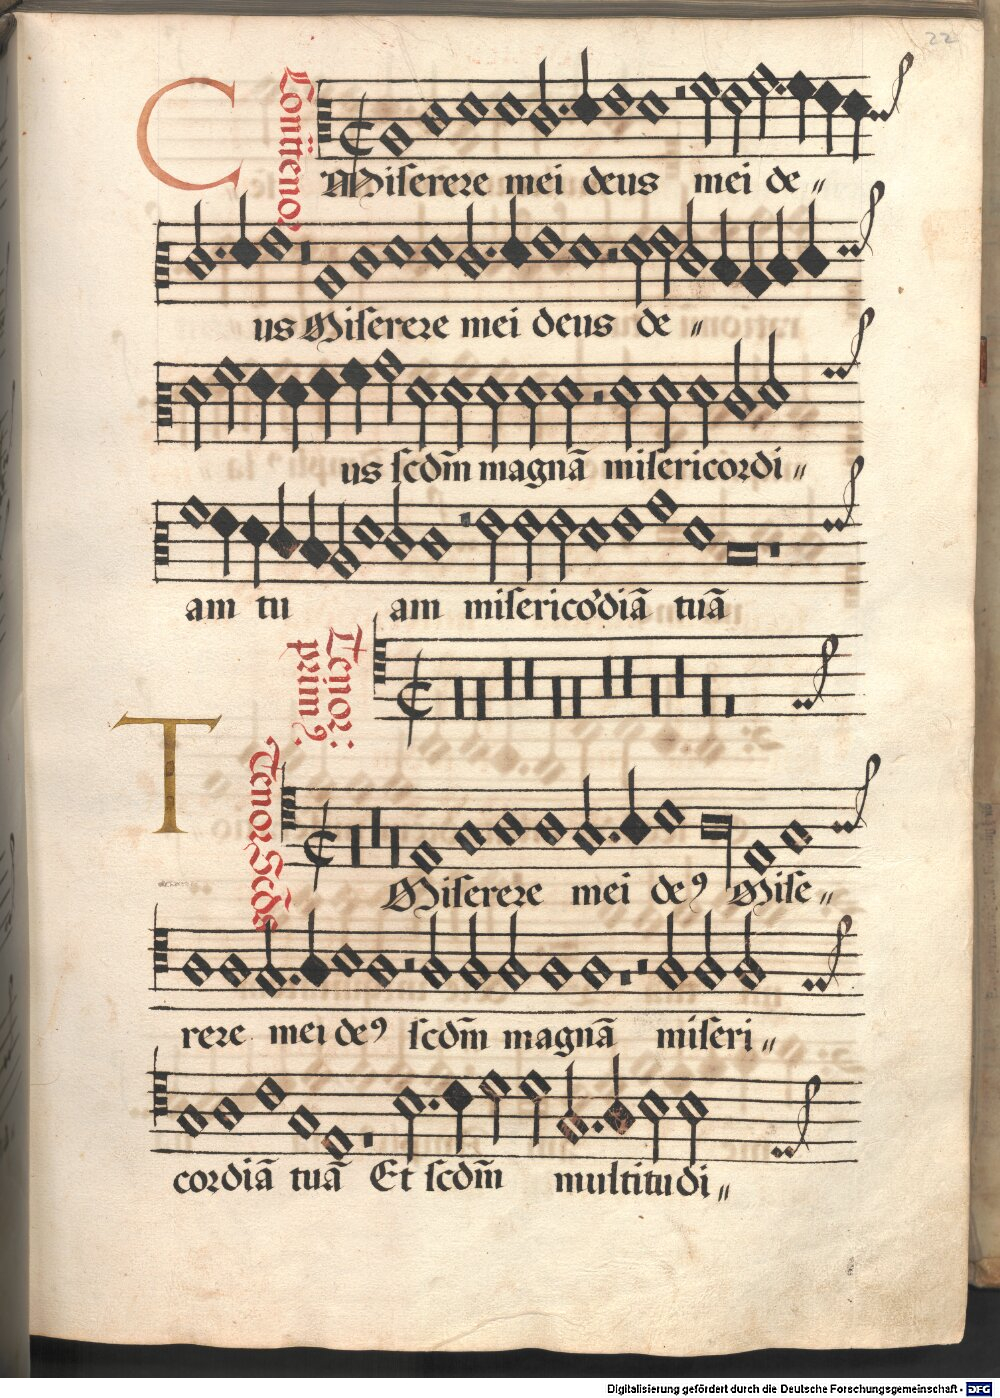 22
C Contteno2
Miserere mei deus mei de〃
us Miserere mei deus de 〃
us scdm̄ magnā misericordi〃
am tu am misericordiā tuā
Tenor:
prim9.
T Tenor Scd̄s
Miserere mei de9 Mise〃
rere mei de9 scdm̄ magnā miseri〃
cordiā tuā Et scdm̄ multitudi〃
Digitalisierung gefördert durch die Deutsche Forschungsgemeinschaft - DFG